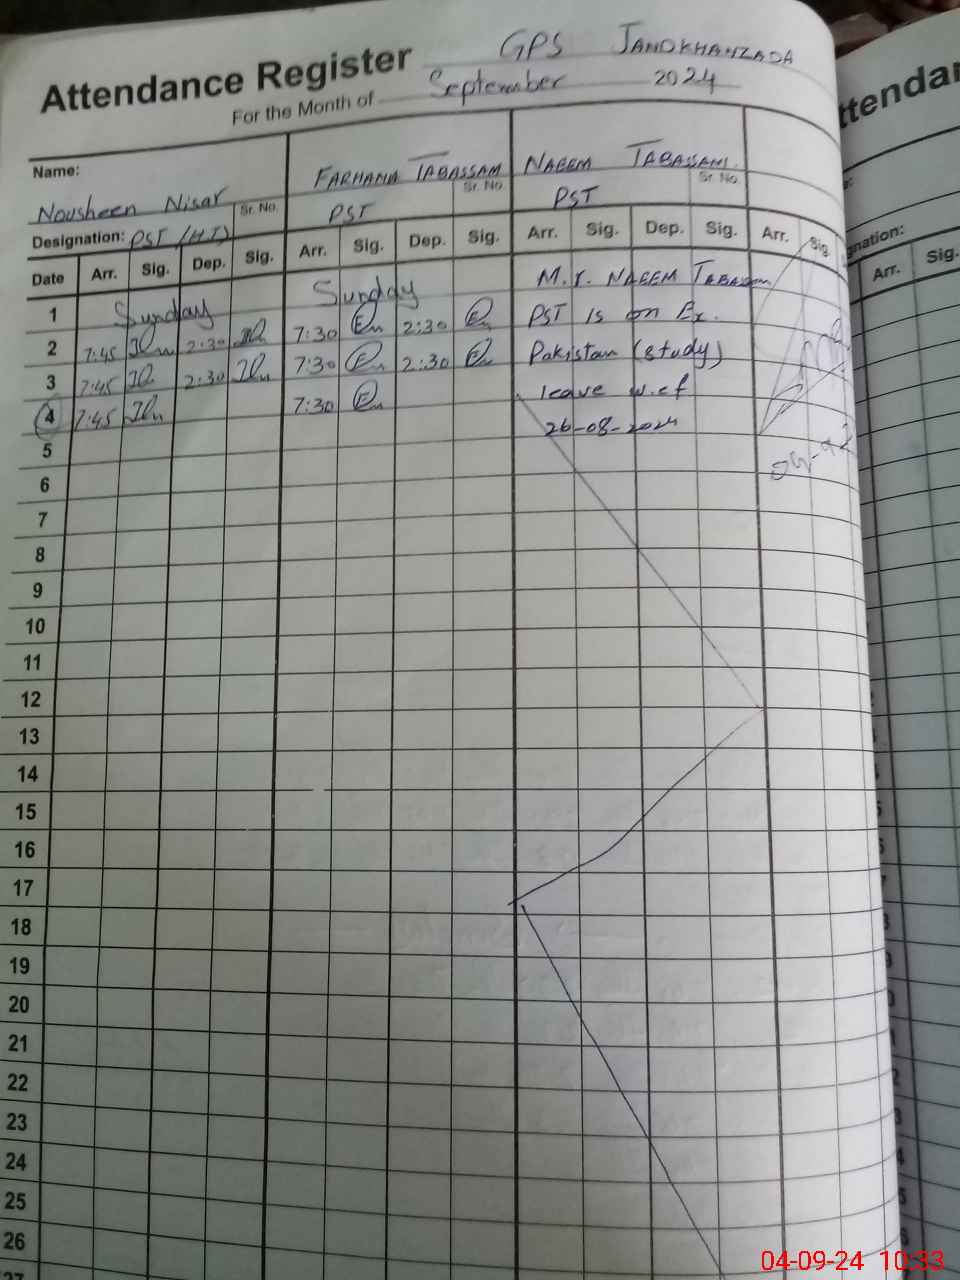 Attendance Register GPS JANDKHANZADA
For the Month of September 2024
Name:
Nousheen Nisar Sr. No. FARHANA TABASSAM Sr. No. NAEEM TABASSAM Sr. No.
Designation: PST (HT) PST PST
Date Arr. Sig. Dep. Sig. Arr. Sig. Dep. Sig. Arr. Sig. Dep. Sig. Arr. Sig.
1 Sunday Sunday M.r. NAEEM TABASSAM
2 7:45 2:30 7:30 2:30 PST is on Ex.
3 7:45 2:30 7:30 2:30 Pakistan (study)
4 7:45 7:30 leave w.ef
5 26-08-2024
6
7
8
9
10
11
12
13
14
15
16
17
18
19
20
21
22
23
24
25
26
27
ttendan
nation:
Arr. Sig.
04-09-24 10:33